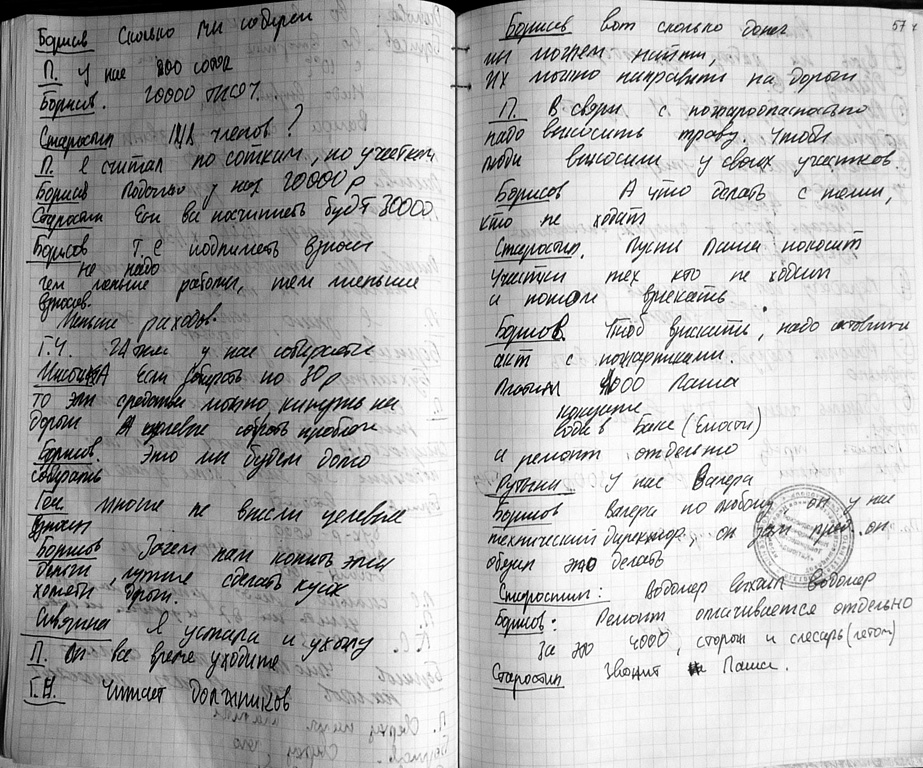 Борисов Сколько мы собирем
П. у нас 800 соток
Борисов. 20000 тысяч.
Старостин членов?
П. Я считал по соткам, по участкам
Борисов у нас 20000 р
Старостин Если вы посчитаете будет 30000
Борисов Т.е поднимать взносы
не надо
чем меньше работы, тем меньше
взносов.
Меньше расходов.
у нас собирается
Если собирать по 30 р
то эти средства можно кинуть на
дороги А целевые собрать проблема
Борисов. Это мы будем долго
собирать
многие не внесли целевые
взносы
Борисов Зачем нам копить эти
деньги, лучше сделать кусок
хотя бы дороги.
Я устала и ухожу
П. вы все время уходите
Читает должников
57
Борисов вот сколько денег
мы можем найти,
Их можно направить на дороги
П. В связи с пожароопасностью
надо выкосить траву. Чтобы
люди выкосили у своих участков.
Борисов А что делать с теми,
кто не ходит
Старостин. Пусть Паша покосит
участки тех кто не ходит
и потом взыскать.
Борисов. Чтоб взыскать, надо составить
акт с пожарниками.
4000 Паша
вода в баке (Емкости)
и ремонт отдельно
у нас Валера
Борисов Валера по любому он у нас
технический директор, он зам пред. он
обещал это делать
Старостин: Водомер Водомер
Борисов: Ремонт оплачивается отдельно
За это 4000, сторож и слесарь (летом)
Старостин Звонит Паше.